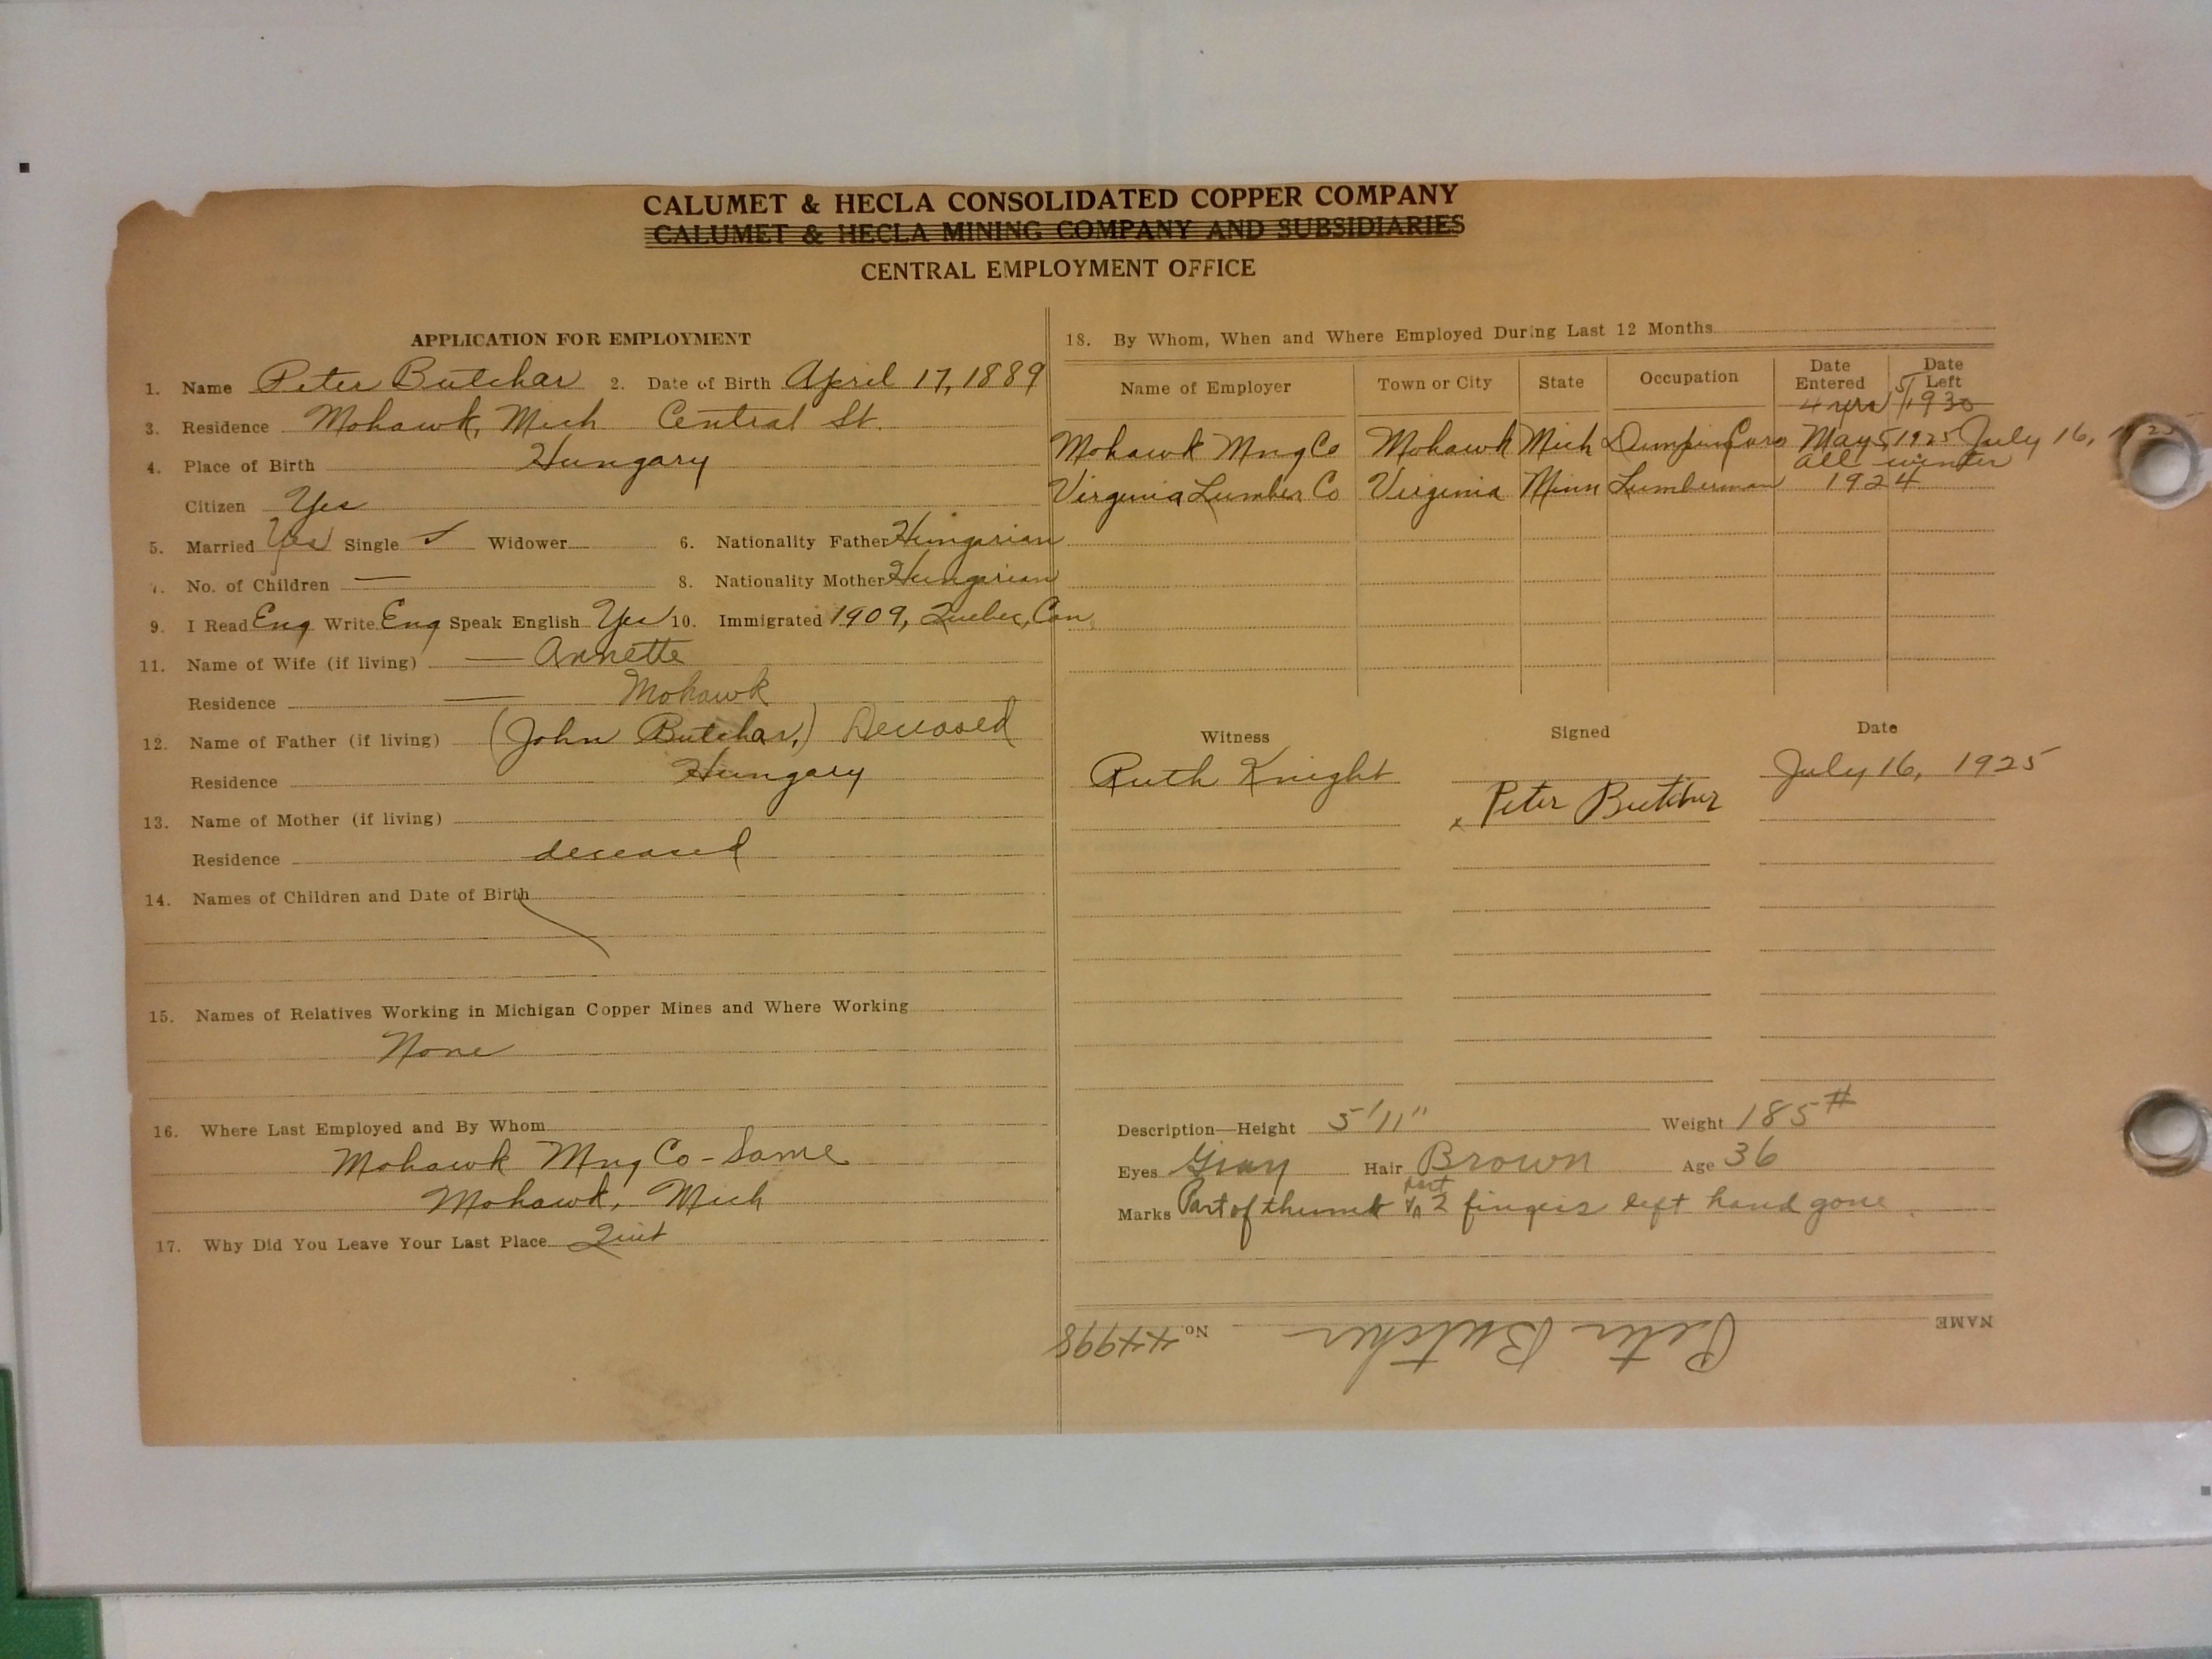 CALUMET & HECLA CONSOLIDATED COPPER COMPANY
CALUMET & HECLA MINING COMPANY AND SUBSIDIARIES
CENTRAL EMPLOYMENT OFFICE
APPLICATION FOR EMPLOYMENT
1. Name Peter Butchar 2. Date of Birth April 17, 1889
3. Residence Mohawk, Mich Central St.
4. Place of Birth Hungary
Citizen Yes
5. Married Yes Single ✓ Widower
6. Nationality Father Hungarian
7. No. of Children —
8. Nationality Mother Hungarian
9. I Read Eng Write Eng Speak English Yes 10. Immigrated 1909, Quebec, Can.
11. Name of Wife (if living) — Annette
Residence — Mohawk
12. Name of Father (if living) (John Butchar,) Deceased
Residence Hungary
13. Name of Mother (if living)
Residence deceased
14. Names of Children and Date of Birth
15. Names of Relatives Working in Michigan Copper Mines and Where Working
None
16. Where Last Employed and By Whom
Mohawk Mng Co - Same
Mohawk, Mich
17. Why Did You Leave Your Last Place Quit
18. By Whom, When and Where Employed During Last 12 Months
Name of Employer Town or City State Occupation Date Entered Date Left
4 yrs 5/1930
Mohawk Mng Co Mohawk Mich Dumping Cars May 5, 1925 July 16, 1925
all winter
Virginia Lumber Co Virginia Minn Lumberman 1924
Witness Signed Date
Ruth Knight July 16, 1925
x Peter Butcher
Description—Height 5'11" Weight 185#
Eyes Gray Hair Brown Age 36
part
Marks Part of thumb & 2 fingers left hand gone.
NAME Peter Butcher No. 44998